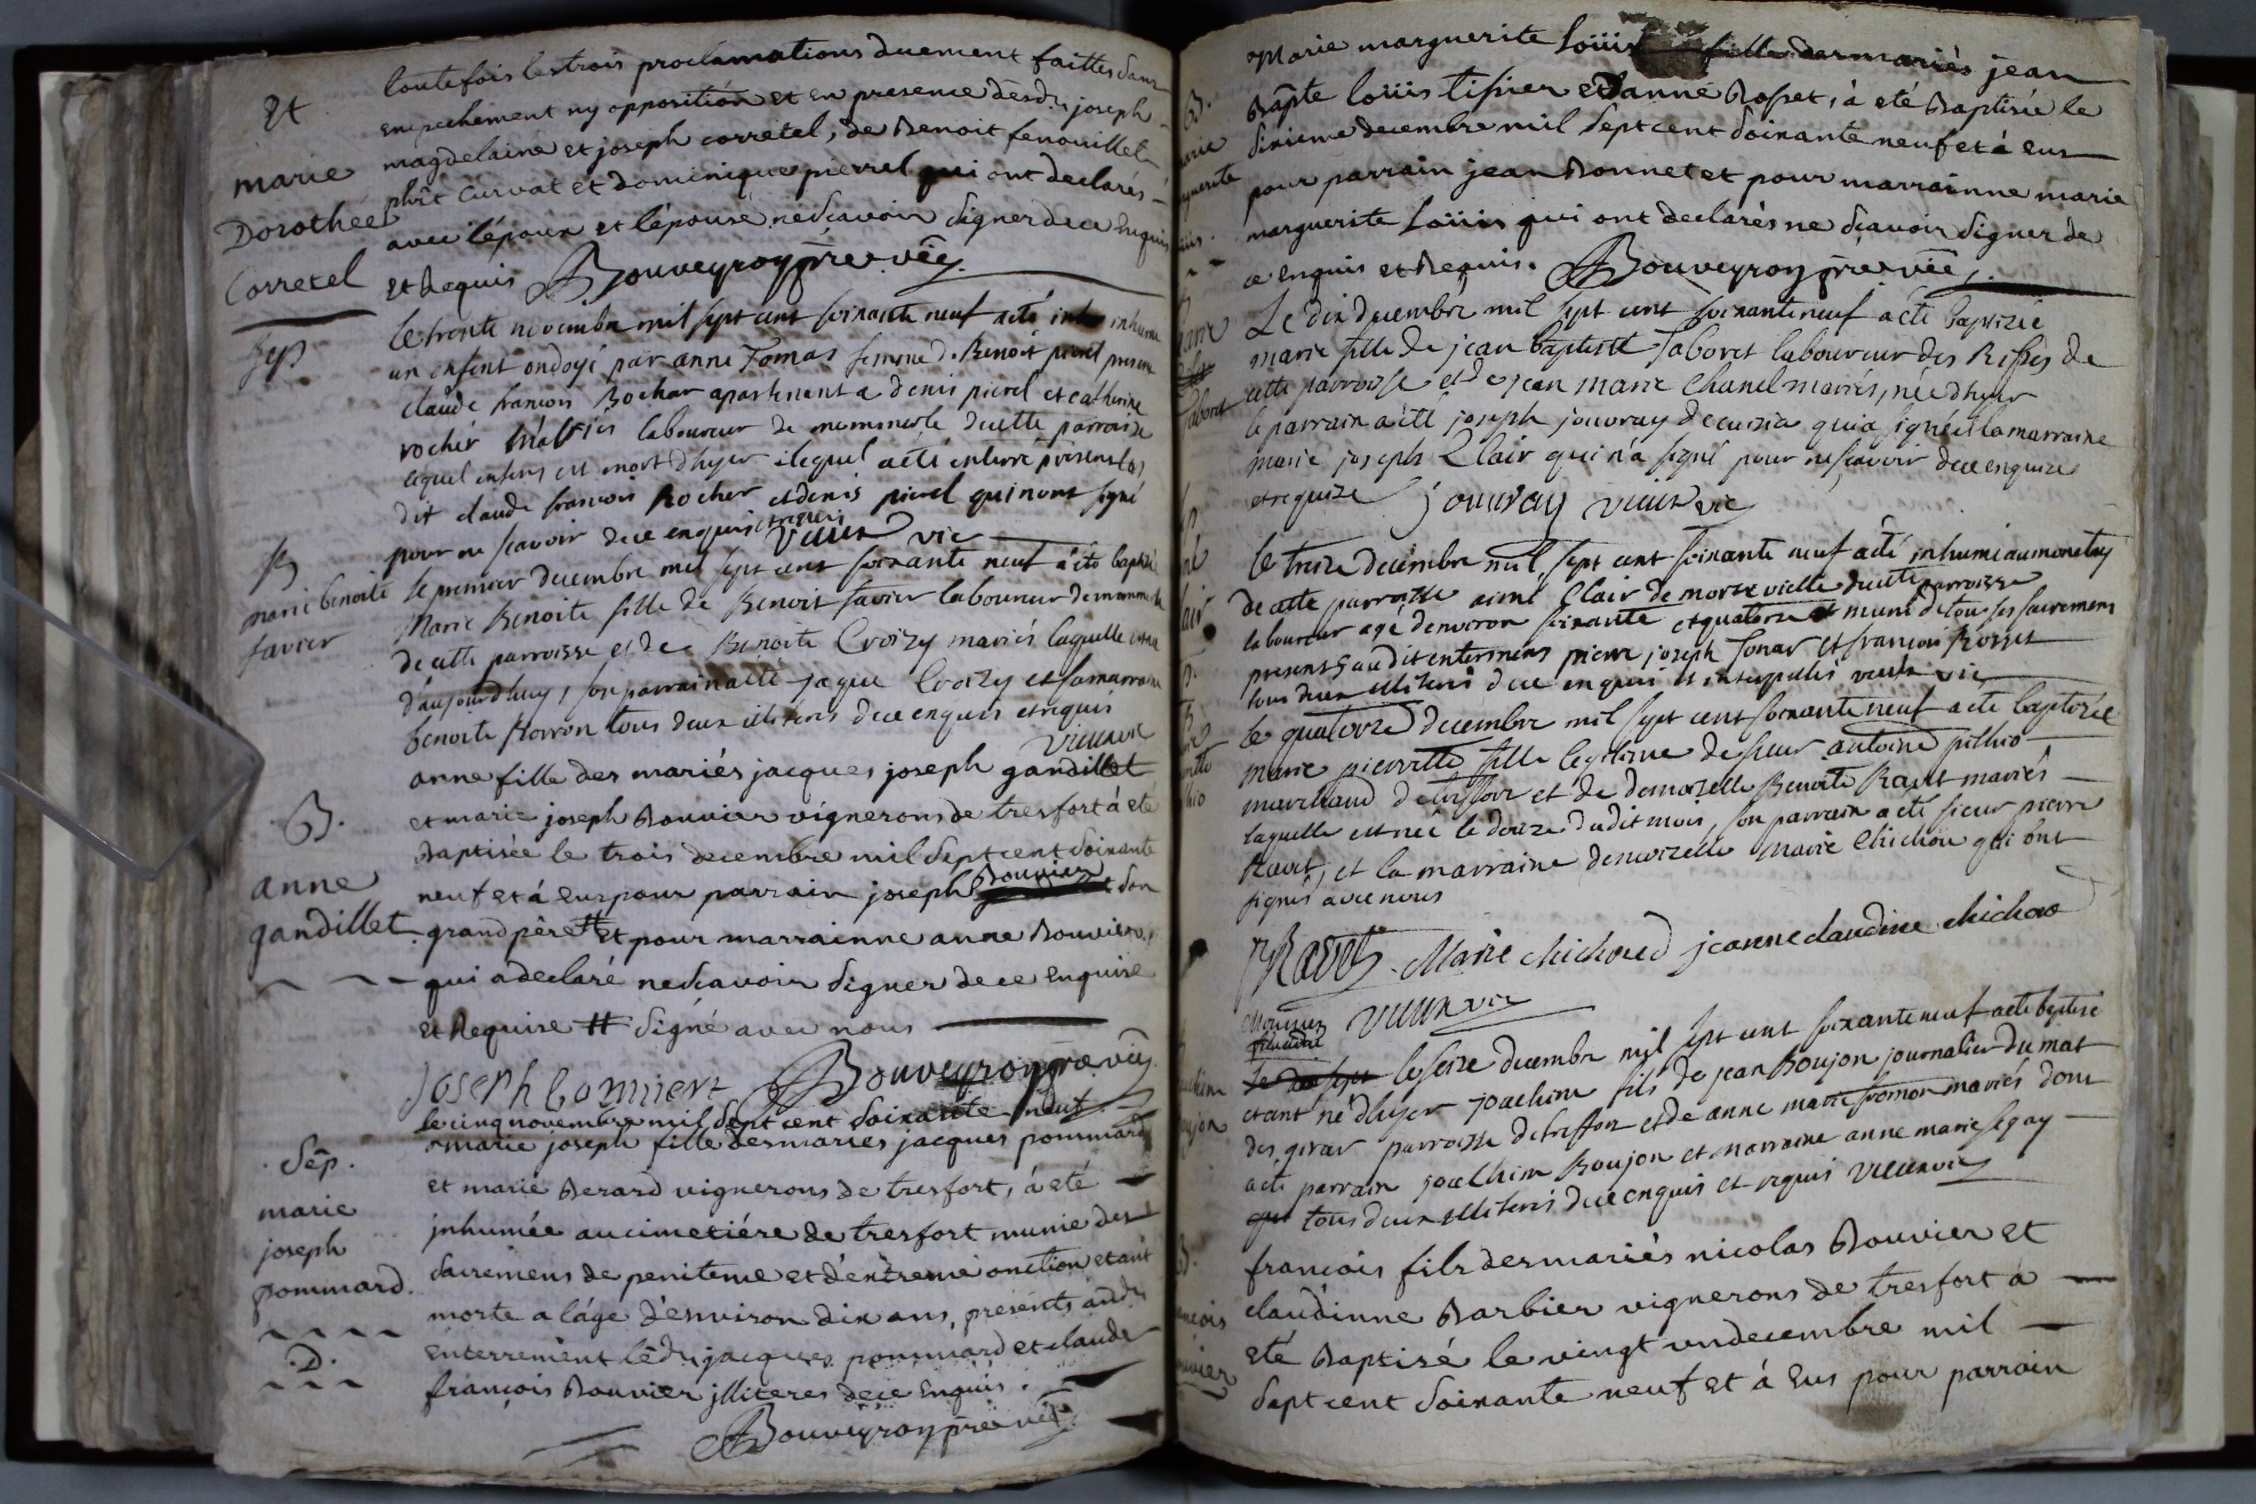 Et
marie
Dorothée
Corretel
toutefois les trois proclamations duement faittes sans
empechement ny opposition et en presence desd. joseph
magdelaine et joseph corretel, de Benoit fenouillet
phît Curvat et dominique pierrel qui ont declarés
avec l'époux et l'épouse ne sçavoir signer de ce Enquis
et Requis Bouveyron prê. vic.
Sep
le trente novembre mil sept cent soixante neuf a été inhumé
un enfent ondoyé par anne Tomas femme d. Benoit pierel presens
claude francois Rochar apartenent a denis pierel et catherine
rocher mariés laboureur de de cette parroisse
lequel enfens est mort dhyer lequel a été enterré présens les
dit claude francois Rocher et denis pierel qui n'ont signé
pour ne scavoir de ce enquis et requis vic
B
marie benoite
favier
le premier decembre mil sept cent soixante neuf a été baptisé
Marie Benoite fille de Benoit favier laboureur
de cette parroisse et de Benoite Croizy mariés laquelle est née
d'aujourdhuy, son parrain a été jaque Croizy et sa marraine
benoite tous deux illiterés de ce enquis et requis
vic
.B.
anne
gandillet
anne fille des mariés jacques joseph gandillet
et marie joseph Bouvier vignerons de tresfort à eté
Baptisée le trois decembre mil sept cent soixante
neuf et à eus pour parrain joseph Bouvier son
grand pére # et pour marrainne anne Bouvier
qui a declaré ne sçavoir signer de ce enquise
et Requise # signé avec nous
Joseph bouvier Bouveyron prê. vic.
. sép .
marie
joseph
pommard.
.D.
le cinq novembre mil sept cent soixante neuf
marie joseph fille des mariés jacques pommard
et marie Berard vignerons de tresfort, à eté
jnhumée au cimetiére de tresfort munie des
sacremens de penitence et d'extreme onction etant
morte a l'áge d'environ dix ans, présents aud.
enterrement lêd. jacques pommard et claude
françois Bouvier jlliteres de ce Enquis.
Bouveyron prê vic.
Marie marguerite Loüis fille des mariés jean
Bapte loüis tissier et anne Rosset, à eté Baptisée le
sixieme decembre mil sept cent soixante neuf et à eus
pour parrain jean Bonnet et pour marrainne marie
marguerite Loüis qui ont declarés ne sçavoir signer de
ce enquis et Requis. Bouveyron prê vic.
Le dix decembre mil sept cent soixante neuf a été baptizée
marie fille de jean baptiste Taboret laboureur des de
cette parroisse et de jean marie Chanel mariés, née dhyer
le parrain a été joseph jouvray de cuizia qui a signé et la marraine
marie joseph Clair qui n'a signé pour ne sçavoir de ce enquize
et requize jouvray vic
le treize decembre mil sept cent soixante neuf a été inhumé au
de cette parroisse aimé Clair de morte vielle de cette parroisse
laboureur agé d'environ soixante et quatorze et muni de tous ses sacremens
presents audit enterremens pierre joseph fonar et francois Rosset
tous deux illiterés de ce enquis et interpellés vic
le quatorze decembre mil sept cent soixante neuf a été baptizée
marie pierrette fille legitime de sieur antoine pithio
marchand de treffort et de demoizelle Benoite Ravet mariés
laquelle est née le douze dudit mois, son parrain a été sieur pierre
Ravet, et la marraine demoizelle Marie Chichou qui ont
signés avec nous
PRavet. Marie chichoud jeanne claudine chichou
vic
le seize decembre mil sept cent soixante neuf a été baptisé
etant né dhyer joachim fils de jean Boujon journalier du mat
des girar parroisse de treffort et de anne marie fromon mariés dont
a été parrain joachim Boujon et marraine anne marie segay
qui tous deux illiterés de ce enquis et requis vic
françois fils des mariés nicolas Bouvier et
claudinne Barbier vignerons de tresfort à
eté Baptisé le vingt un decembre mil
sept cent soixante neuf et à eus pour parrain